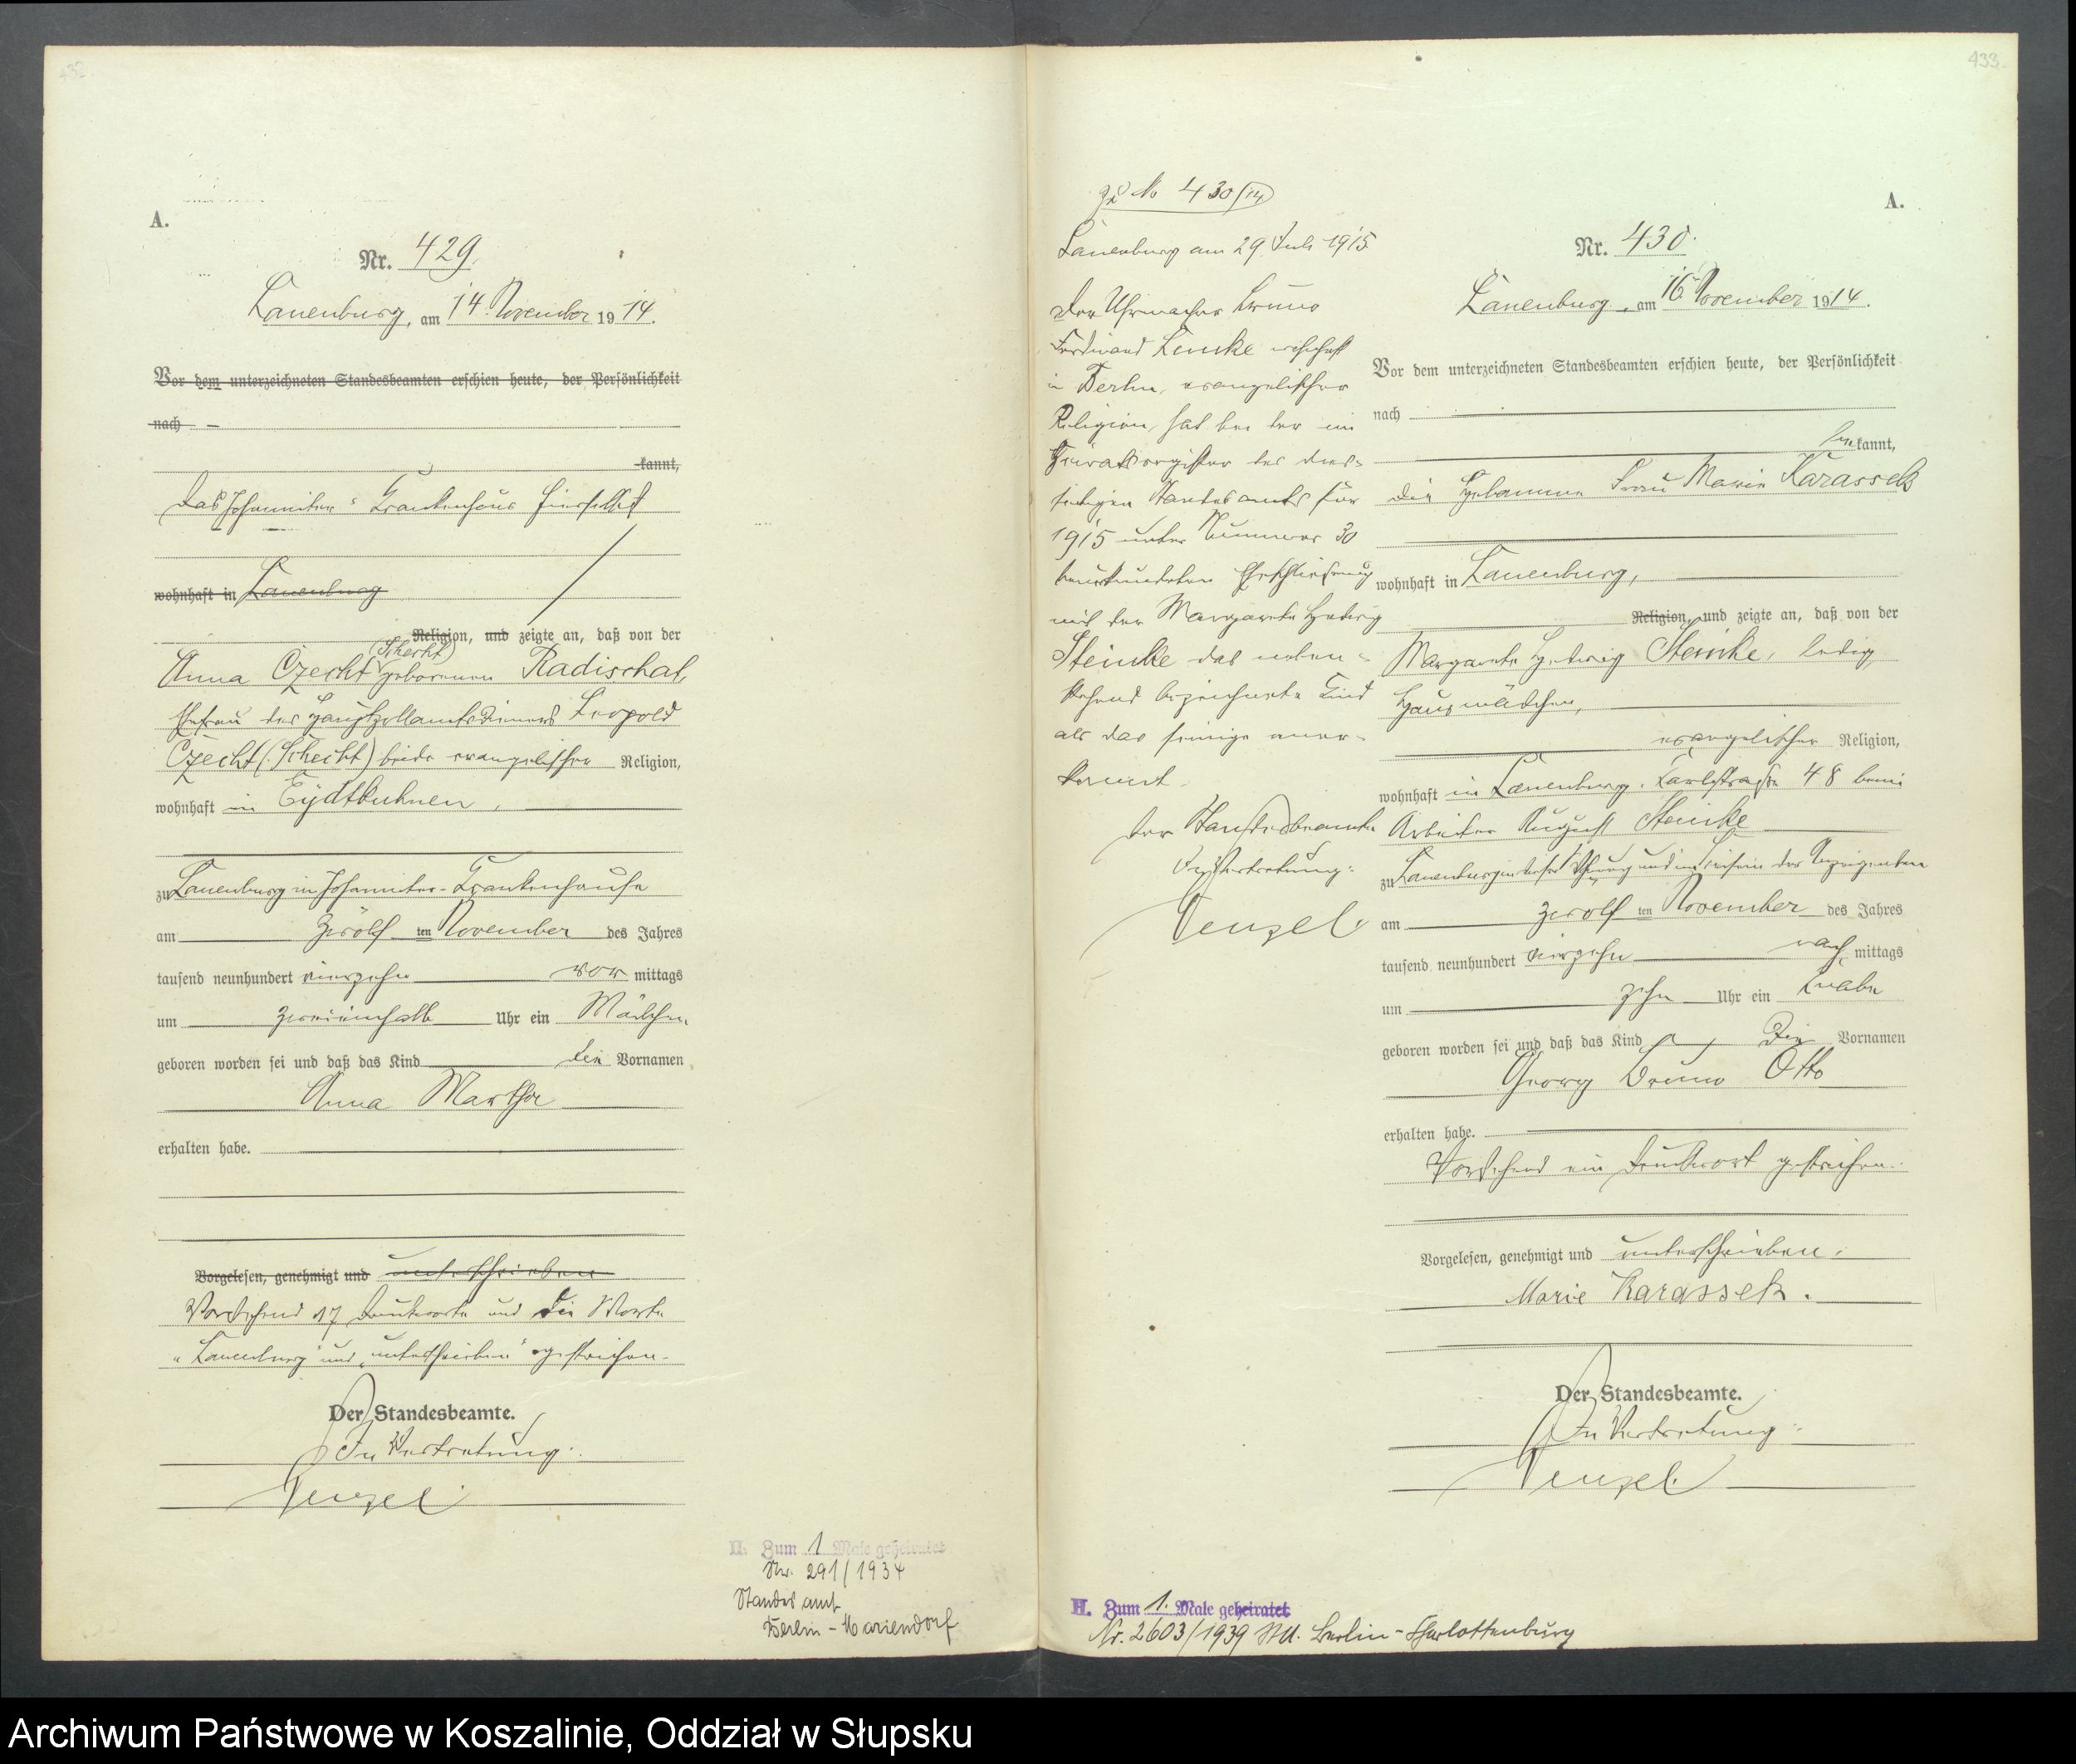 432.
A.
Nr. 429.
Lauenburg, am 14. November 1914.
Vor dem unterzeichneten Standesbeamten erschien heute, der Persönlichkeit
nach –
kannt,
Das Johanniter-Krankenhaus hierselbst
wohnhaft in Lauenburg
Religion, und zeigte an, daß von der
(Schecht)
Anna Czecht geborenen Radischat,
Ehefrau des Hauptzollamtsdieners Leopold
Czecht (Schecht) beide evangelischer Religion,
wohnhaft in Eydtkuhnen,
zu Lauenburg im Johanniter-Krankenhause
am zwölften November des Jahres
tausend neunhundert vierzehn vormittags
um zweieinhalb Uhr ein Mädchen
geboren worden sei und daß das Kind die Vornamen
Anna Martha
erhalten habe.
Vorgelesen, genehmigt und unterschrieben
Vorstehend 17 Druckworte und die Worte
"Lauenburg" und "unterschrieben" gestrichen.
Der Standesbeamte.
In Vertretung:
Wenzel.
II. Zum 1 Male geheiratet
Nr. 291/1934
Standesamt
Berlin-Mariendorf
433.
zu No 430/14
Lauenburg am 29. Juli 1915
Der Uhrmacher Bruno
Ferdinand Lemke wohnhaft
in Berlin, evangelischer
Religion, hat bei der im
Heiratsregister des dies-
seitigen Standesamts für
1915 unter Nummer 30
beurkundeten Eheschließung
mit der Margarete Hedwig
Steinke das neben-
stehend bezeichnete Kind
als das seinige aner-
kannt.
Der Standesbeamte
In Vertretung:
Wenzel.
A.
Nr. 430.
Lauenburg, am 16. November 1914.
Vor dem unterzeichneten Standesbeamten erschien heute, der Persönlichkeit
nach
bekannt,
die Hebamme Frau Marie Karasseck
wohnhaft in Lauenburg,
Religion, und zeigte an, daß von der
Margarete Hedwig Steinke, ledig,
Hausmädchen,
evangelischer Religion,
wohnhaft in Lauenburg, Karlstraße 48 beim
Arbeiter August Steinke
zu Lauenburg in dieser Wohnung und im Beisein der Anzeigenden
am zwölften November des Jahres
tausend neunhundert vierzehn nachmittags
um zehn Uhr ein Knabe
geboren worden sei und daß das Kind die Vornamen
Georg Bruno Otto
erhalten habe.
Vorstehend ein Druckwort gestrichen.
Vorgelesen, genehmigt und unterschrieben.
Marie Karassek.
Der Standesbeamte.
In Vertretung:
Wenzel.
II. Zum 1. Male geheiratet
Nr. 2603/1939 StA. Berlin-Charlottenburg
Archiwum Państwowe w Koszalinie, Oddział w Słupsku